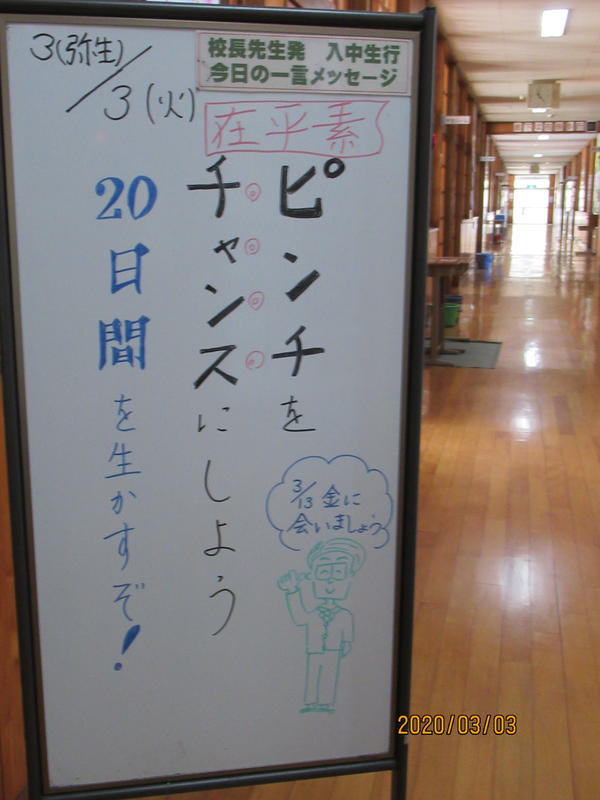 3(弥生)/3(火)
校長先生発 入中生行
今日の一言メッセージ
在平素
ピンチを
チャンスにしよう
20日間を生かすぞ!
3/13金に
会いましょう
2020/03/03